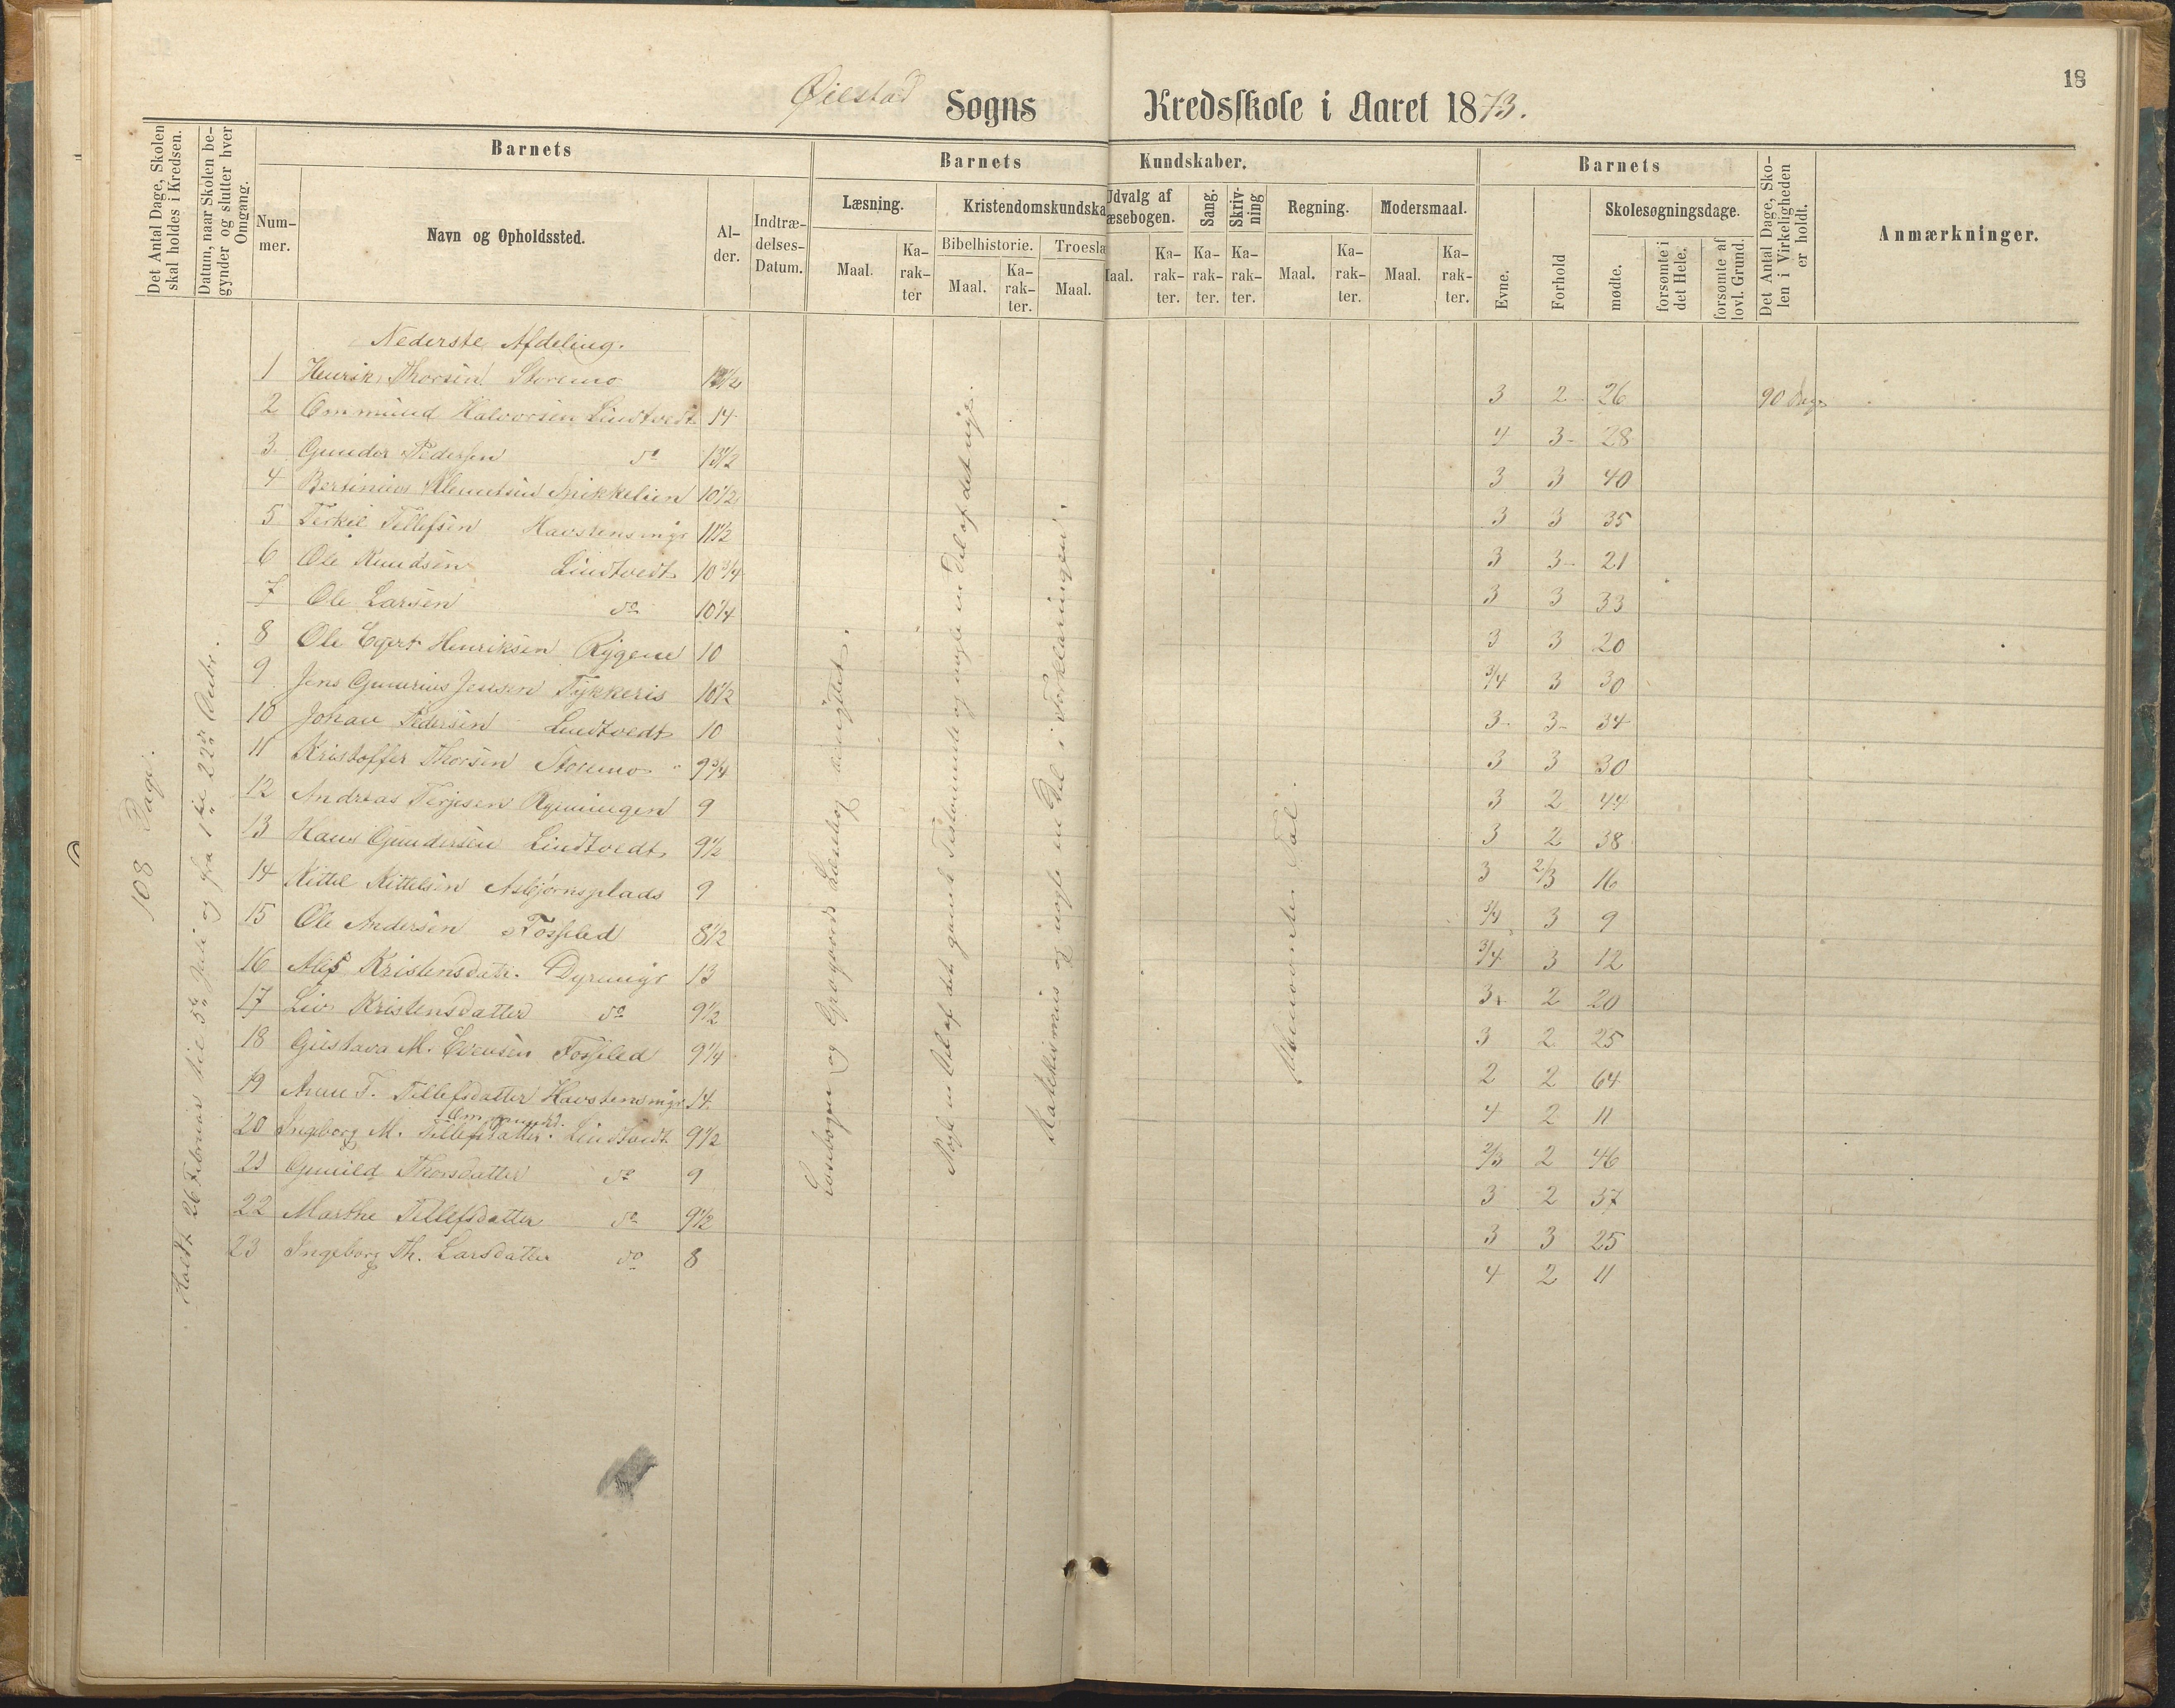 18
Øiestad Sogns Kredsskole i Aaret 1873.
Det Antal Dage, Skolen skal holdes i Kredsen.
Datum, naar Skolen begynder og slutter hver Omgang.
Barnets
Nummer.
Navn og Opholdssted.
Alder.
Indtrædelses-Datum.
Barnets Kundskaber.
Læsning.
Maal.
Karakter
Kristendomskundska
Bibelhistorie.
Maal.
Karakter.
Troesla
Maal.
Udvalg af
æsebogen.
Maal.
Karakter.
Sang.
Karakter.
Skrivning
Karakter.
Regning.
Maal.
Karakter.
Modersmaal.
Maal.
Karakter.
Barnets
Evne.
Forhold
Skolesøgningsdage.
mødte.
forsømte i det Hele.
forsømte af lovl. Grund.
Det Antal Dage, Skolen i Virkeligheden er holdt.
Anmærkninger.
108 Dage.
Holdt 26 Februar til 5te Juli og fra 1ste til 22de Octbr.
Nederste Afdeling.
1 Henrik Thorsen Storemo 3 2 26 90 Dage
2 Ommund Halvorsen Lindtvedt 14 4 3- 28
3. Gunder Pedersen do 13 1/2 3 3 40
4 Bertinius Klemetsen Snikkelien 10 1/2 3 3 35
5 Terkil Tellefsen Havstensmyr 11 1/2 3 3- 21
6 Ole Knudsen Lindtvedt 10 3/4 3 3 33
7 Ole Larsen do 10 1/4 3 3 20
8 Ole Egert Henriksen Rygene 10 3/4 3 30
9 Jens Gunerius Jensen Tykkeris 10 1/2 3- 3- 34
10 Johan Pedersen Lindtvedt 10 3 3 30
11 Kristoffer Thorsen Storemo 9 3/4 3 2 44
12 Andreas Terjesen Rønningen 9 3 2 38
13 Hans Gundersen Lindtvedt 9 1/2 3 2/3 16
14 Kittel Kittelsen Asbjørnsplads 9 3/4 3 9
15 Ole Andersen Fosseled 8 1/2 3/4 3 12
16 Alis Kristensdatr. Dyremyr 13 3+ 2 20
17 Liv Kristensdatter do 9 1/2 3 2 25
18 Gustava M. Evensen Fosseled 9 1/4 2 2 64
19 Anne T. Tellefsdatter Havstensmyr 14 4 2 11
Ommunds.
20 Ingeborg M. Tellefsdatter. Lindtvedt 9 1/2 2/3 2 46
21 Gunild Thorsdatter do 9 3 2 37
22 Marthe Tellefsdatter do 9 1/2 3 3 25
23 Ingeborg Th. Larsdatter do 8 4 2 11
Læsebogen og
Nogle en Del af det gamle Testamente og nogle en Del af det nye.
Katekismus og nogle en Del i Forklaringen.
Ubenævnte Tal.